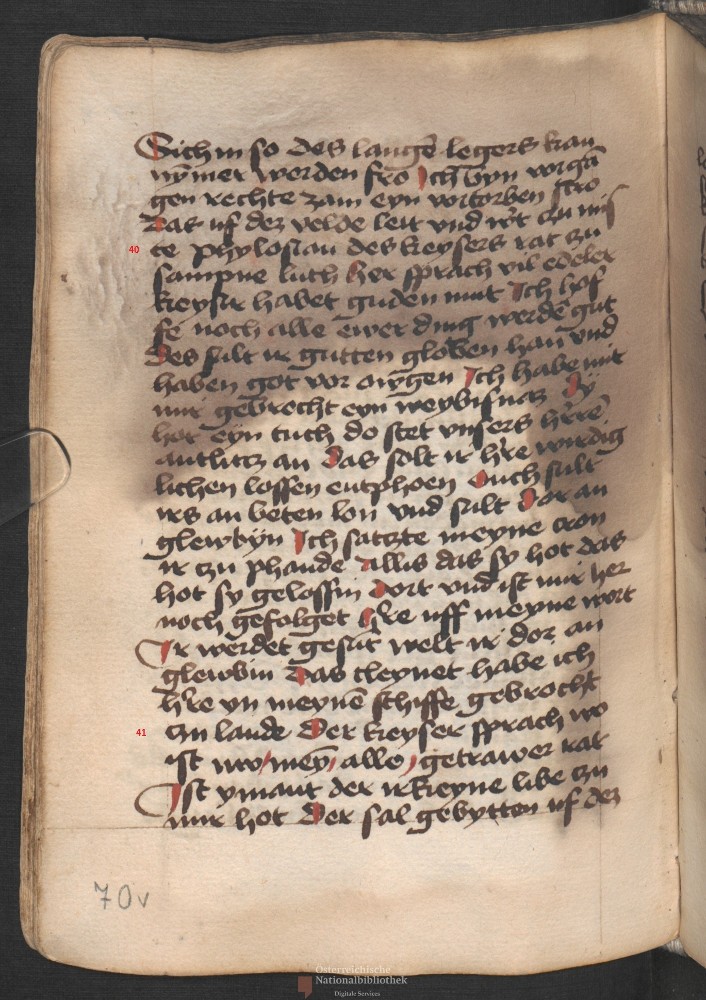 Sich in so des langē legers kan
nȳmer werden fro Ich byn vorgā
gen rechte zam eyn vortorben stro
Das uf dez velde leit vnd wirt czu mis
40 te phylosiau des keysers rat zu
sampne luth her sprach vil edeler
keysir habet guden mut Ich hof
fe noch alle ewer ding werdē gut
Des sult ir gutten globen han vnd
haben got vor owgen Ich habe mit
mir gebrocht eyn weybisnatz Dy
hot eyn tuch do stet vnsers hꝛre
antlitcz an Das solt ir hꝛe wirdig
lichen lossen entphoen Ouch sult
irs an beten lon vnd sult Dor an
glewbyn Ich satczte meyne cron
ir czu phande Allis das sy hot das
hot sy gelossin dort vnd ist mir her
noch gefolget Hꝛe uff meyne wort
Ir werdet gesūt welt ir dor an
glewbin Das cleynet habe ich
hꝛe yn meynē schiffe gebrocht
41 czu lande Der keyser sprach wo
ist nw meyn alle getrawer rat
Ist ymant der irkeyne libe czu
mir hot Der sal gebytten uf dez
70v
Österreichische
Nationalbibliothek
Digitale Services